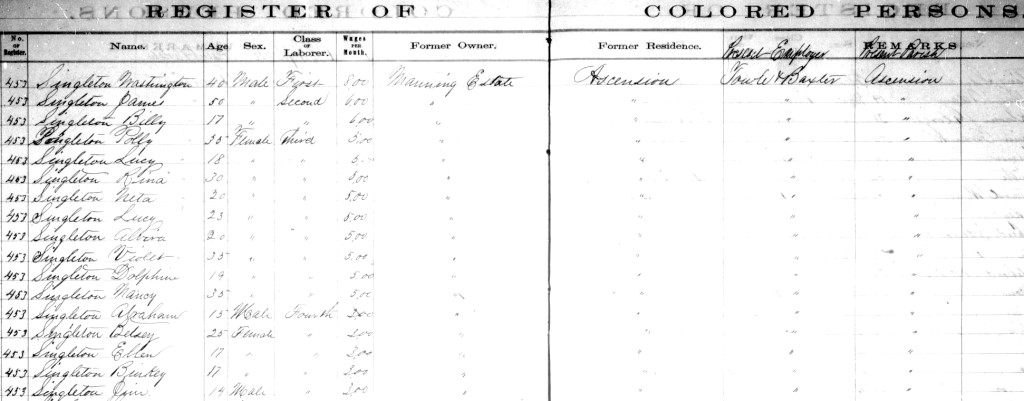 REGISTER OF COLORED PERSONS.
No. of Register. Name. Age Sex. Class of Laborer. Wages PER Month. Former Owner. Former Residence. Present Employer REMARKS. Present Parish
453 Singleton Washington 40 Male First 8.00 Manning Estate Ascension Fowle & Baxter Ascension
453 Singleton James 50 " Second 6.00 " " " "
453 Singleton Billy 17 " " 6.00 " " " "
453 Singleton Polly 35 Female Third 5.00 " " " "
453 Singleton Lucy 18 " " 5. " " " "
453 Singleton Rina 30 " " 5.00 " " " "
453 Singleton Neta 20 " " 5.00 " " " "
453 Singleton Lucy 23 " " 5.00 " " " "
453 Singleton Alvira 20 " " 5.00 " " " "
453 Singleton Violet 35 " " 5.00 " " " "
453 Singleton Dolphine 19 " " 5.00 " " " "
453 Singleton Nancy 35 " " 5.00 " " " "
453 Singleton Abraham 15 Male Fourth 3.00 " " " "
453 Singleton Betsey 25 Female " 3.00 " " " "
453 Singleton Ellen 17 " " 3.00 " " " "
453 Singleton Binkey 17 " " 3.00 " " " "
453 Singleton Jim 14 Male " 3.00 " " " "